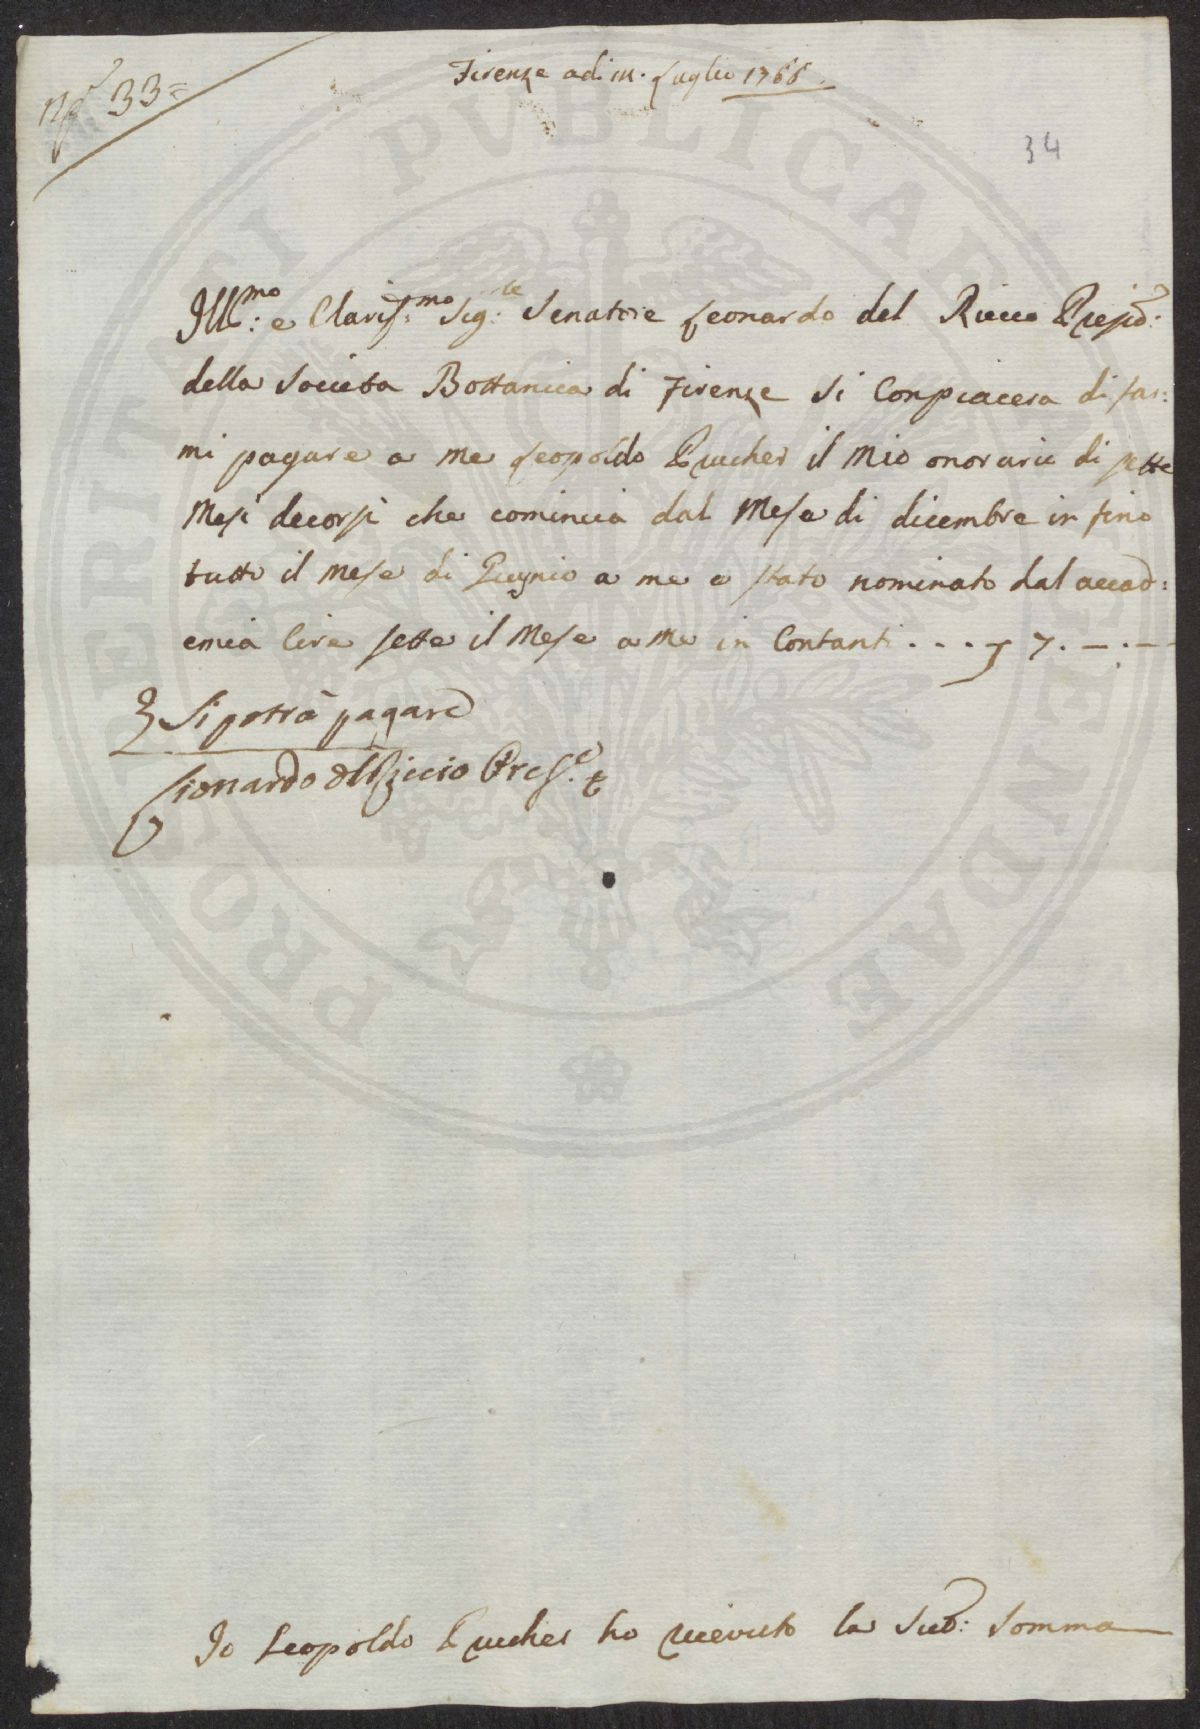 N.º 33=
Firenze adi m. Luglio 1766.
34
Ill.mo: e Clariss.mo Sig.re Senatore Leonardo del Riccio Presid:
della Societa Bottanica di Firenze si Conpiacera di far:
mi pagare a me Leopoldo Prucher il mio onorario di sette
Mesi decorsi che comincia dal Mese di dicembre in fino
tutto il Mese di Giugnio a me e stato nominato dal accad:
emia lire sette il Mese a me in Contanti . . . £ 7. — . —
Si potrà pagare
Lionardo del Riccio Pres.e
Io Leopoldo Prucher ho ricevuto la Sud: Somma
PROSPERITATI PVBLICAE AVGENDAE